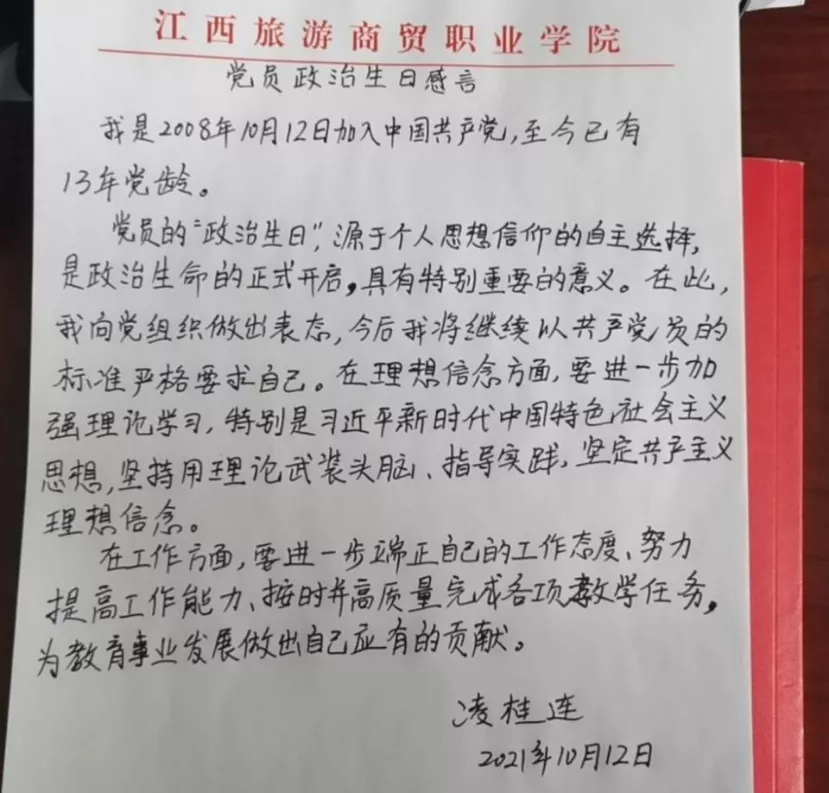 江西旅游商贸职业学院
党员政治生日感言
我是2008年10月12日加入中国共产党,至今已有
13年党龄。
党员的“政治生日”,源于个人思想信仰的自主选择,
是政治生命的正式开启,具有特别重要的意义。在此,
我向党组织做出表态,今后我将继续以共产党员的
标准严格要求自己。在理想信念方面,要进一步加
强理论学习,特别是习近平新时代中国特色社会主义
思想,坚持用理论武装头脑、指导实践,坚定共产主义
理想信念。
在工作方面,要进一步端正自己的工作态度、努力
提高工作能力、按时并高质量完成各项教学任务,
为教育事业发展做出自己应有的贡献。
凌桂连
2021年10月12日